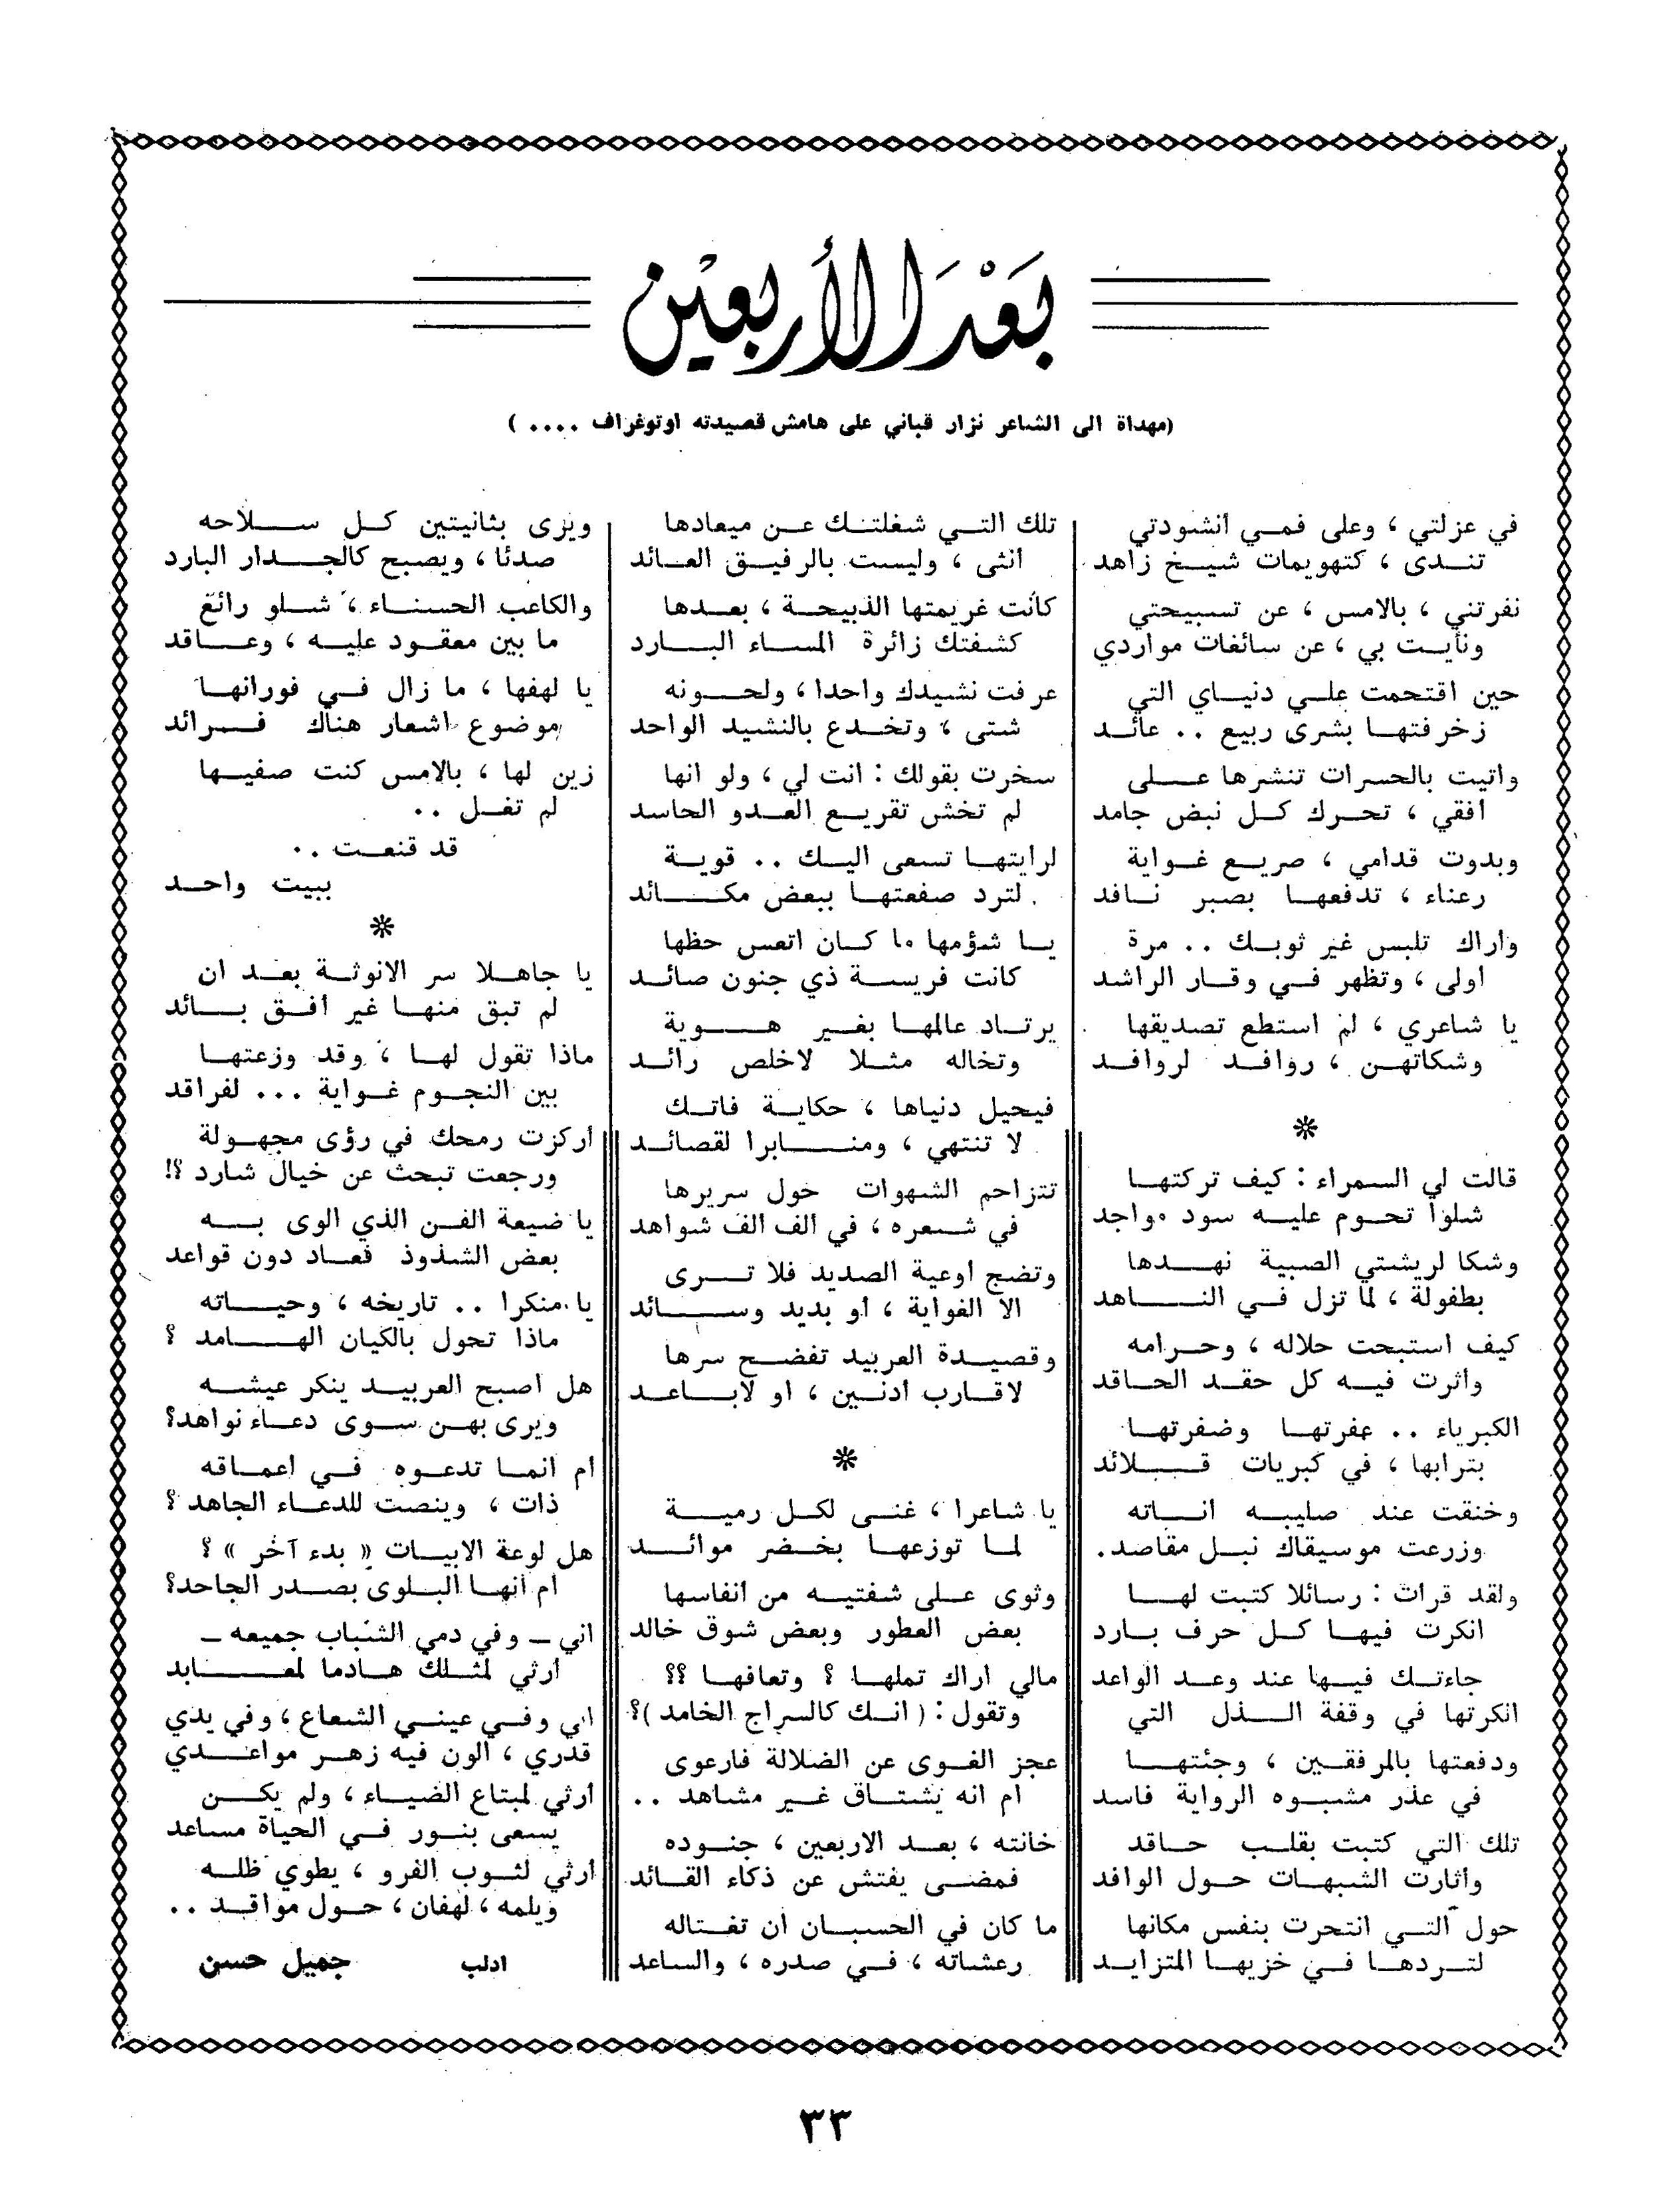 بَعْدَ الأربعين
(مهداة الى الشاعر نزار قباني على هامش قصيدته اوتوغراف ....)
في عزلتي ، وعلى فمي أنشودتي
تندى ، كتهويمات شيخ زاهد
نفرتني ، بالامس ، عن تسبيحتي
ونأيت بي ، عن سائغات مواردي
حين اقتحمت علي دنياي التي
زخرفتها بشرى ربيع .. عائد
واتيت بالحسرات تنشرها على
أفقي ، تحرك كل نبض جامد
وبدوت قدامي ، صريع غواية
رعناء ، تدفعها بصبر نافد
واراك تلبس غير ثوبك .. مرة
أولى ، وتظهر في وقار الراشد
يا شاعري ، لم استطع تصديقها
وشكاتهن ، روافد لروافد
*
قالت لي السمراء : كيف تركتها
شلوا تحوم عليه سود مواجد
وشكا لريشتي الصبية نهدها
بطفولة ، لما تزل في الناهد
كيف استبحت حلاله ، وحرامه
وأثرت فيه كل حقد الحاقد
الكبرياء .. عفرتها وضفرتها
بترابها ، في كبريات قلائد
وخنقت عند صليبه اناته
وزرعت موسيقاك نبل مقاصد.
ولقد قرات : رسائلا كتبت لها
انكرت فيها كل حرف بارد
جاءتك فيها عند وعد الواعد
انكرتها في وقفة الذل التي
ودفعتها بالمرفقين ، وجئتها
في عذر مشبوه الرواية فاسد
تلك التي كتبت بقلب حاقد
وأثارت الشبهات حول الوافد
حول التي انتحرت بنفس مكانها
لتردها في خزيها المتزايد
تلك التي شغلتك عن ميعادها
انثى ، وليست بالرفيق العائد
كانت غريمتها الذبيحة ، بعدها
كشفتك زائرة المساء البارد
عرفت نشيدك واحدا ، ولحونه
شتى ، وتخدع بالنشيد الواحد
سخرت بقولك : انت لي ، ولو انها
لم تخش تقريع العدو الحاسد
لرايتها تسعى اليك .. قوية
لترد صفعتها ببعض مكائد
يا شؤمها ما كان اتعس حظها
كانت فريسة ذي جنون صائد
يرتاد عالمها بغير هوية
وتخاله مثلا لاخلص رائد
فيحيل دنياها ، حكاية فاتك
لا تنتهي ، ومنابرا لقصائد
تتزاحم الشهوات حول سريرها
في شعره ، في الف الف شواهد
وتضج أوعية الصديد فلا ترى
الا الغواية ، أو بديد وسائد
وقصيدة العربيد تفضح سرها
لاقارب أدنين ، او لاباعد
*
يا شاعرا ، غنى لكل رمية
لما توزعها بخضر موائد
وثوى على شفتيه من أنفاسها
بعض العطور وبعض شوق خالد
مالي اراك تملها ؟ وتعافها ؟؟
وتقول : ( انك كالسراج الخامد )؟
عجز الغوى عن الضلالة فارعوى
ام انه يشتاق غير مشاهد ..
خانته ، بعد الاربعين ، جنوده
فمضى يفتش عن ذكاء القائد
ما كان في الحسبان أن تغتاله
رعشاته ، في صدره ، والساعد
ويرى بثانيتين كل سلاحه
صدئا ، ويصبح كالجدار البارد
والكاعب الحسناء ، شلو رائع
ما بين معقود عليه ، وعاقد
يا لهفها ، ما زال في فورانها
موضوع اشعار هناك فرائد
زين لها ، بالامس كنت صفيها
لم تغل ..
قد قنعت ..
ببيت واحد
*
يا جاهلا سر الانوثة بعد ان
لم تبق منها غير أفق بائد
ماذا تقول لها ، وقد وزعتها
بين النجوم غواية ... لفراقد
أركزت رمحك في رؤى مجهولة
ورجعت تبحث عن خيال شارد ؟!
يا ضيعة الفن الذي الوى به
بعض الشذوذ فعاد دون قواعد
يا منكرا .. تاريخه ، وحياته
ماذا تحول بالكيان الهامد ؟
هل أصبح العربيد ينكر عيشه
ويرى بهن سوى دعاء نواهد؟
أم انما تدعوه في اعماقه
ذات ، وينصت للدعاء الجاهد ؟
هل لوعة الابيات « بدء آخر » ؟
أم انها البلوى بصدر الجاحد؟
اني ــ وفي دمي الشباب جميعه ــ
أرثي لمثلك هادما لمعابد
اني وفي عيني الشعاع ، وفي يدي
قدري ، الون فيه زهر مواعدي
أرثي لمبتاع الضياء ، ولم يكن
يسعى بنور في الحياة مساعد
أرثي لثوب الفرو ، يطوي ظله
ويلمه ، لهفان ، حول مواقد ..
ادلب جميل حسن
٣٣